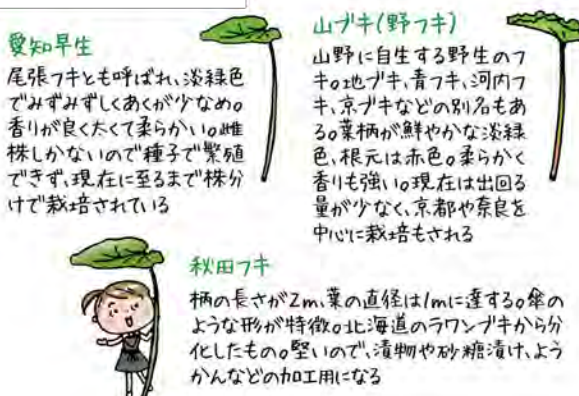 愛知早生
尾張フキとも呼ばれ、淡緑色
でみずみずしくあくが少なめ。
香りが良く太くて柔らかい。雌
株しかないので種子で繁殖
できず、現在に至るまで株分
けで栽培されている
山ブキ(野フキ)
山野に自生する野生のフ
キ。地ブキ、青フキ、河内フ
キ、京ブキなどの別名もあ
る。葉柄が鮮やかな淡緑
色、根元は赤色。柔らかく
香りも強い。現在は出回る
量が少なく、京都や奈良を
中心に栽培もされる
秋田フキ
柄の長さが2m、葉の直径は1mに達する。傘の
ような形が特徴。北海道のラワンブキから分
化したもの。堅いので、漬物や砂糖漬け、よう
かんなどの加工用になる